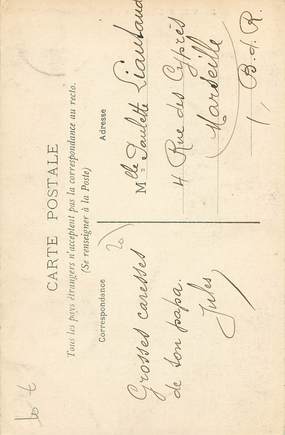 CARTE POSTALE
Tous les pays étrangers n'acceptent pas la correspondance au recto.
(Se renseigner à la Poste)
Correspondance
Adresse
Grosses caresses
de son papa.
Jules
Mlle Paulette Liautaud
4 Rue des Cyprès
Marseille
B. d. R.
20